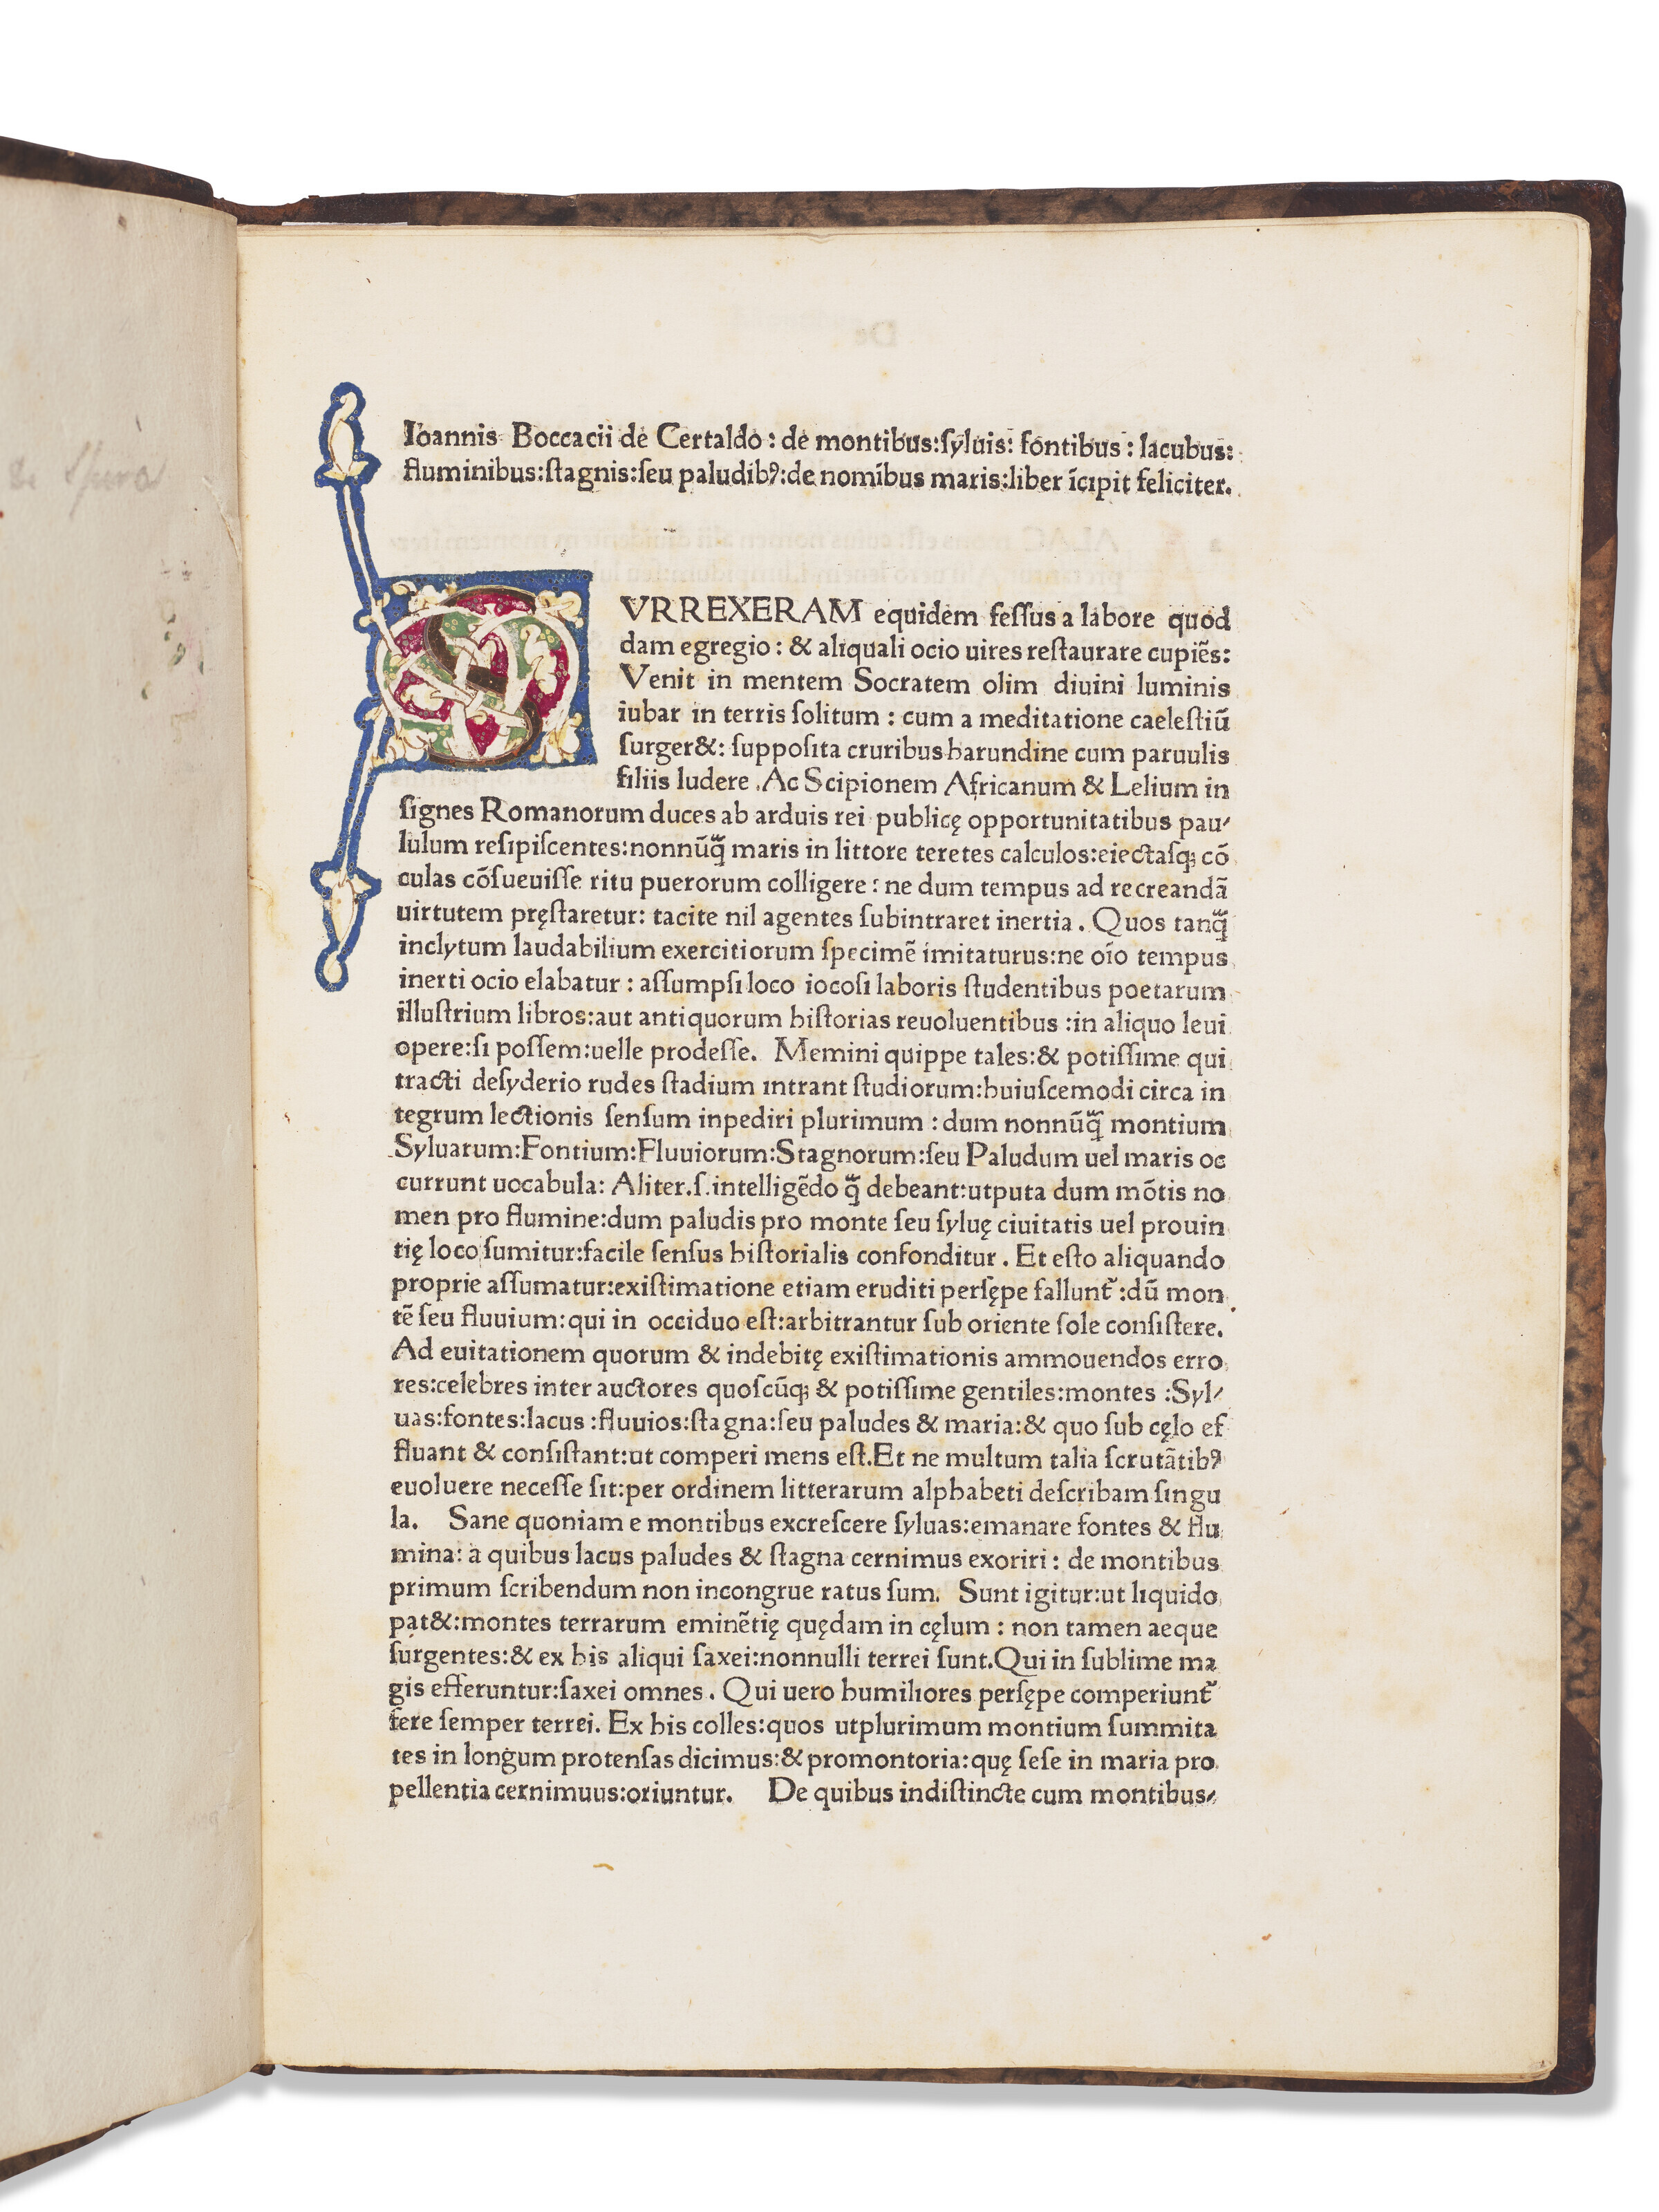 Ioannis Boccacii de Certaldo : de montibus:ſyluis: fontibus : lacubus:
fluminibus:ſtagnis:ſeu paludibꝰ:de nomībus maris:liber īcipit feliciter.
SVRREXERAM equidem feſſus a labore quod
dam egregio : & aliquali ocio uires reſtaurare cupiēs:
Venit in mentem Socratem olim diuini luminis
iubar in terris ſolitum : cum a meditatione caeleſtiū
ſurger&: ſuppoſita cruribus harundine cum paruulis
filiis ludere .Ac Scipionem Africanum & Lelium in
ſignes Romanorum duces ab arduis rei publicę opportunitatibus pau⸗
lulum reſipiſcentes:nonnūq̄ maris in littore teretes calculos:eiectaſq; cō
culas cōſueuiſſe ritu puerorum colligere : ne dum tempus ad recreandā
uirtutem pręſtaretur: tacite nil agentes ſubintraret inertia . Quos tanq̄
inclytum laudabilium exercitiorum ſpecimē imitaturus:ne oīo tempus
inerti ocio elabatur : aſſumpſi loco iocoſi laboris ſtudentibus poetarum
illuſtrium libros:aut antiquorum hiſtorias reuoluentibus :in aliquo leui
opere:ſi poſſem:uelle prodeſſe. Memini quippe tales:& potiſſime qui
tracti deſyderio rudes ſtadium intrant ſtudiorum:huiuſcemodi circa in
tegrum lectionis ſenſum inpediri plurimum : dum nonnūq̄ montium
Syluarum:Fontium:Fluuiorum:Stagnorum:ſeu Paludum uel maris oc
currunt uocabula: Aliter.ſ.intelligēdo q̄ debeant:utputa dum mōtis no
men pro flumine:dum paludis pro monte ſeu ſyluę ciuitatis uel prouin
tię loco ſumitur:facile ſenſus hiſtorialis confonditur . Et eſto aliquando
proprie aſſumatur:exiſtimatione etiam eruditi perſępe fallunt᷑ :dū mon
tē ſeu fluuium:qui in occiduo eſt:arbitrantur ſub oriente ſole conſiſtere.
Ad euitationem quorum & indebitę exiſtimationis ammouendos erro
res:celebres inter auctores quoſcūq; & potiſſime gentiles:montes :Syl⸗
uas:fontes:lacus :fluuios:ſtagna:ſeu paludes & maria:& quo ſub cęlo ef
fluant & conſiſtant:ut comperi mens eſt.Et ne multum talia ſcrutātibꝰ
euoluere neceſſe ſit:per ordinem litterarum alphabeti deſcribam ſingu
la. Sane quoniam e montibus excreſcere ſyluas:emanare fontes & flu
mina: a quibus lacus paludes & ſtagna cernimus exoriri : de montibus
primum ſcribendum non incongrue ratus ſum. Sunt igitur:ut liquido
pat&:montes terrarum eminētię quędam in cęlum : non tamen aeque
ſurgentes:& ex his aliqui ſaxei:nonnulli terrei ſunt.Qui in ſublime ma
gis efferuntur:ſaxei omnes . Qui uero humiliores perſępe comperiunt᷑
fere ſemper terrei. Ex his colles:quos utplurimum montium ſummita
tes in longum protenſas dicimus:& promontoria:quę ſeſe in maria pro
pellentia cernimuus:oriuntur. De quibus indiſtincte cum montibus⸗